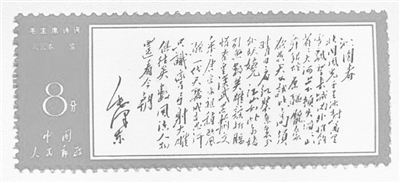 毛主席诗词
沁园春 雪
8分
中国
人民邮政
沁园春
北国风光千里冰封万里
雪飘望长城内外惟余莽
莽大河上下顿失滔滔山
舞银蛇原驰蜡象
欲与天公试比高须
晴日看红装素裹
分外妖娆江山如此多娇
引无数英雄竞折腰
惜秦皇汉武略输文
采唐宗宋祖稍逊风
骚一代天骄成吉思汗
只识弯弓射大雕
俱往矣数风流人物
还看今朝
毛泽东